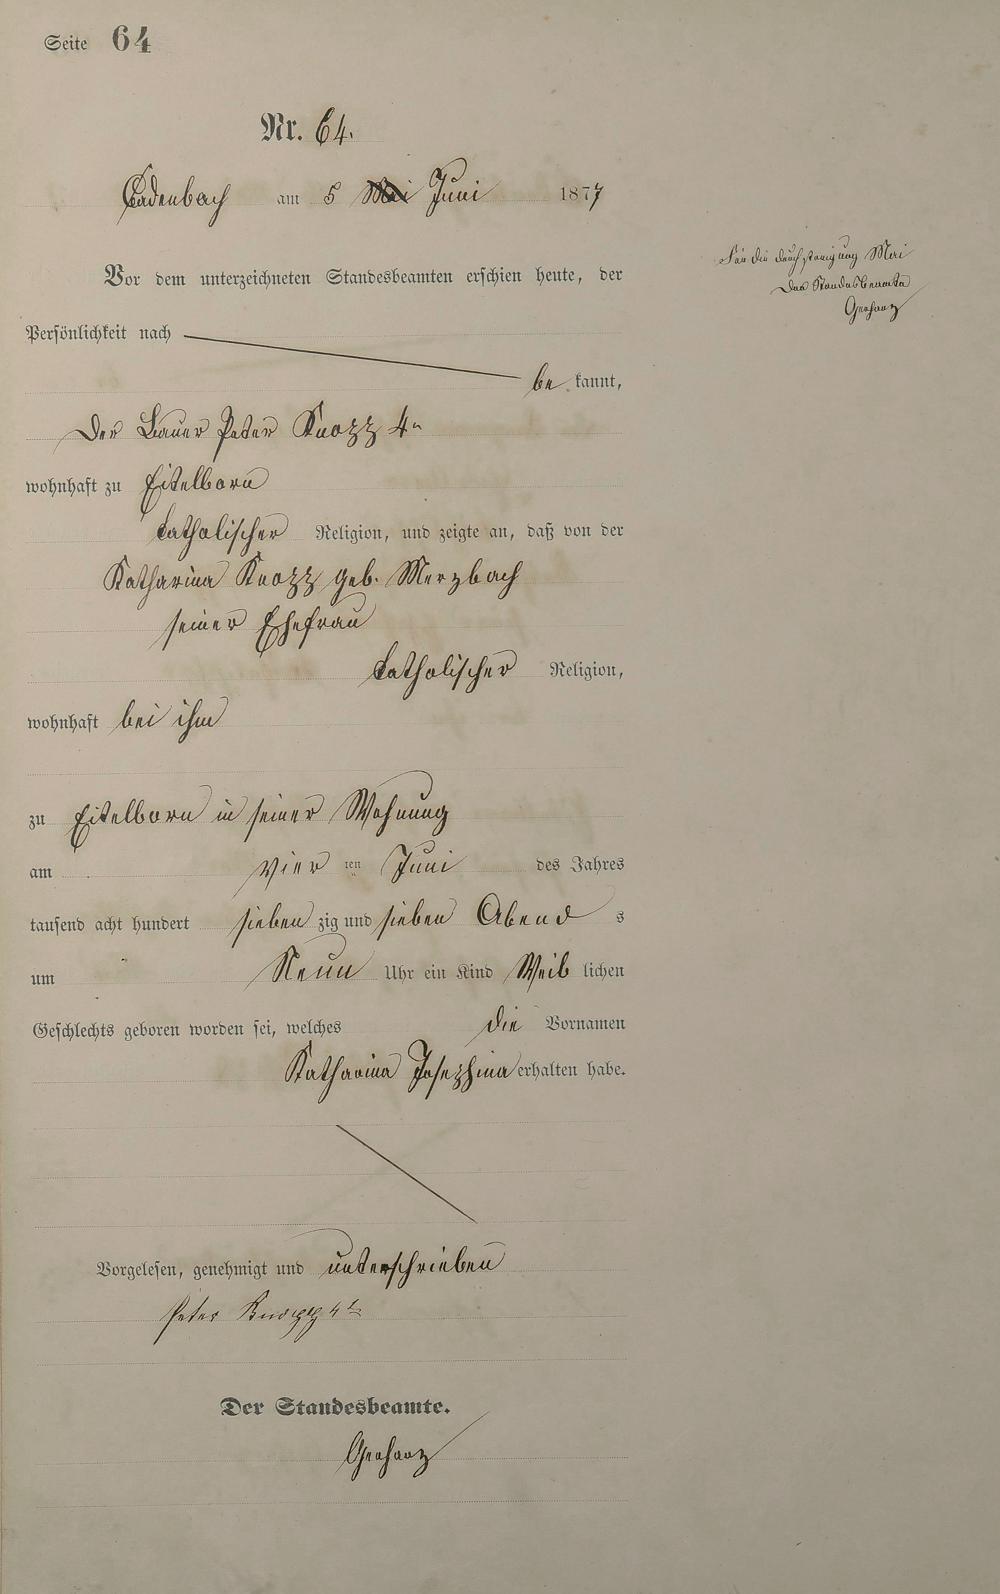 Seite 64
Nr. 64.
Cadenbach am 5 Mai Juni 1877
Für die Durchstreichung Mai
Der Standesbeamte
Gerharz
Vor dem unterzeichneten Standesbeamten erschien heute, der
Persönlichkeit nach
be kannt,
Der Bauer Peter Knopp 4r
wohnhaft zu Eitelborn
katholischer Religion, und zeigte an, daß von der
Katharina Knopp geb. Merzbach
seiner Ehefrau
katholischer Religion,
wohnhaft bei ihm
zu Eitelborn in seiner Wohnung
am vier ten Juni des Jahres
tausend acht hundert sieben zig und sieben Abend s
um Neun Uhr ein Kind Weib lichen
Geschlechts geboren worden sei, welches die Vornamen
Katharina Josephina erhalten habe.
Vorgelesen, genehmigt und unterschrieben
Peter Knopp 4r
Der Standesbeamte.
Gerharz